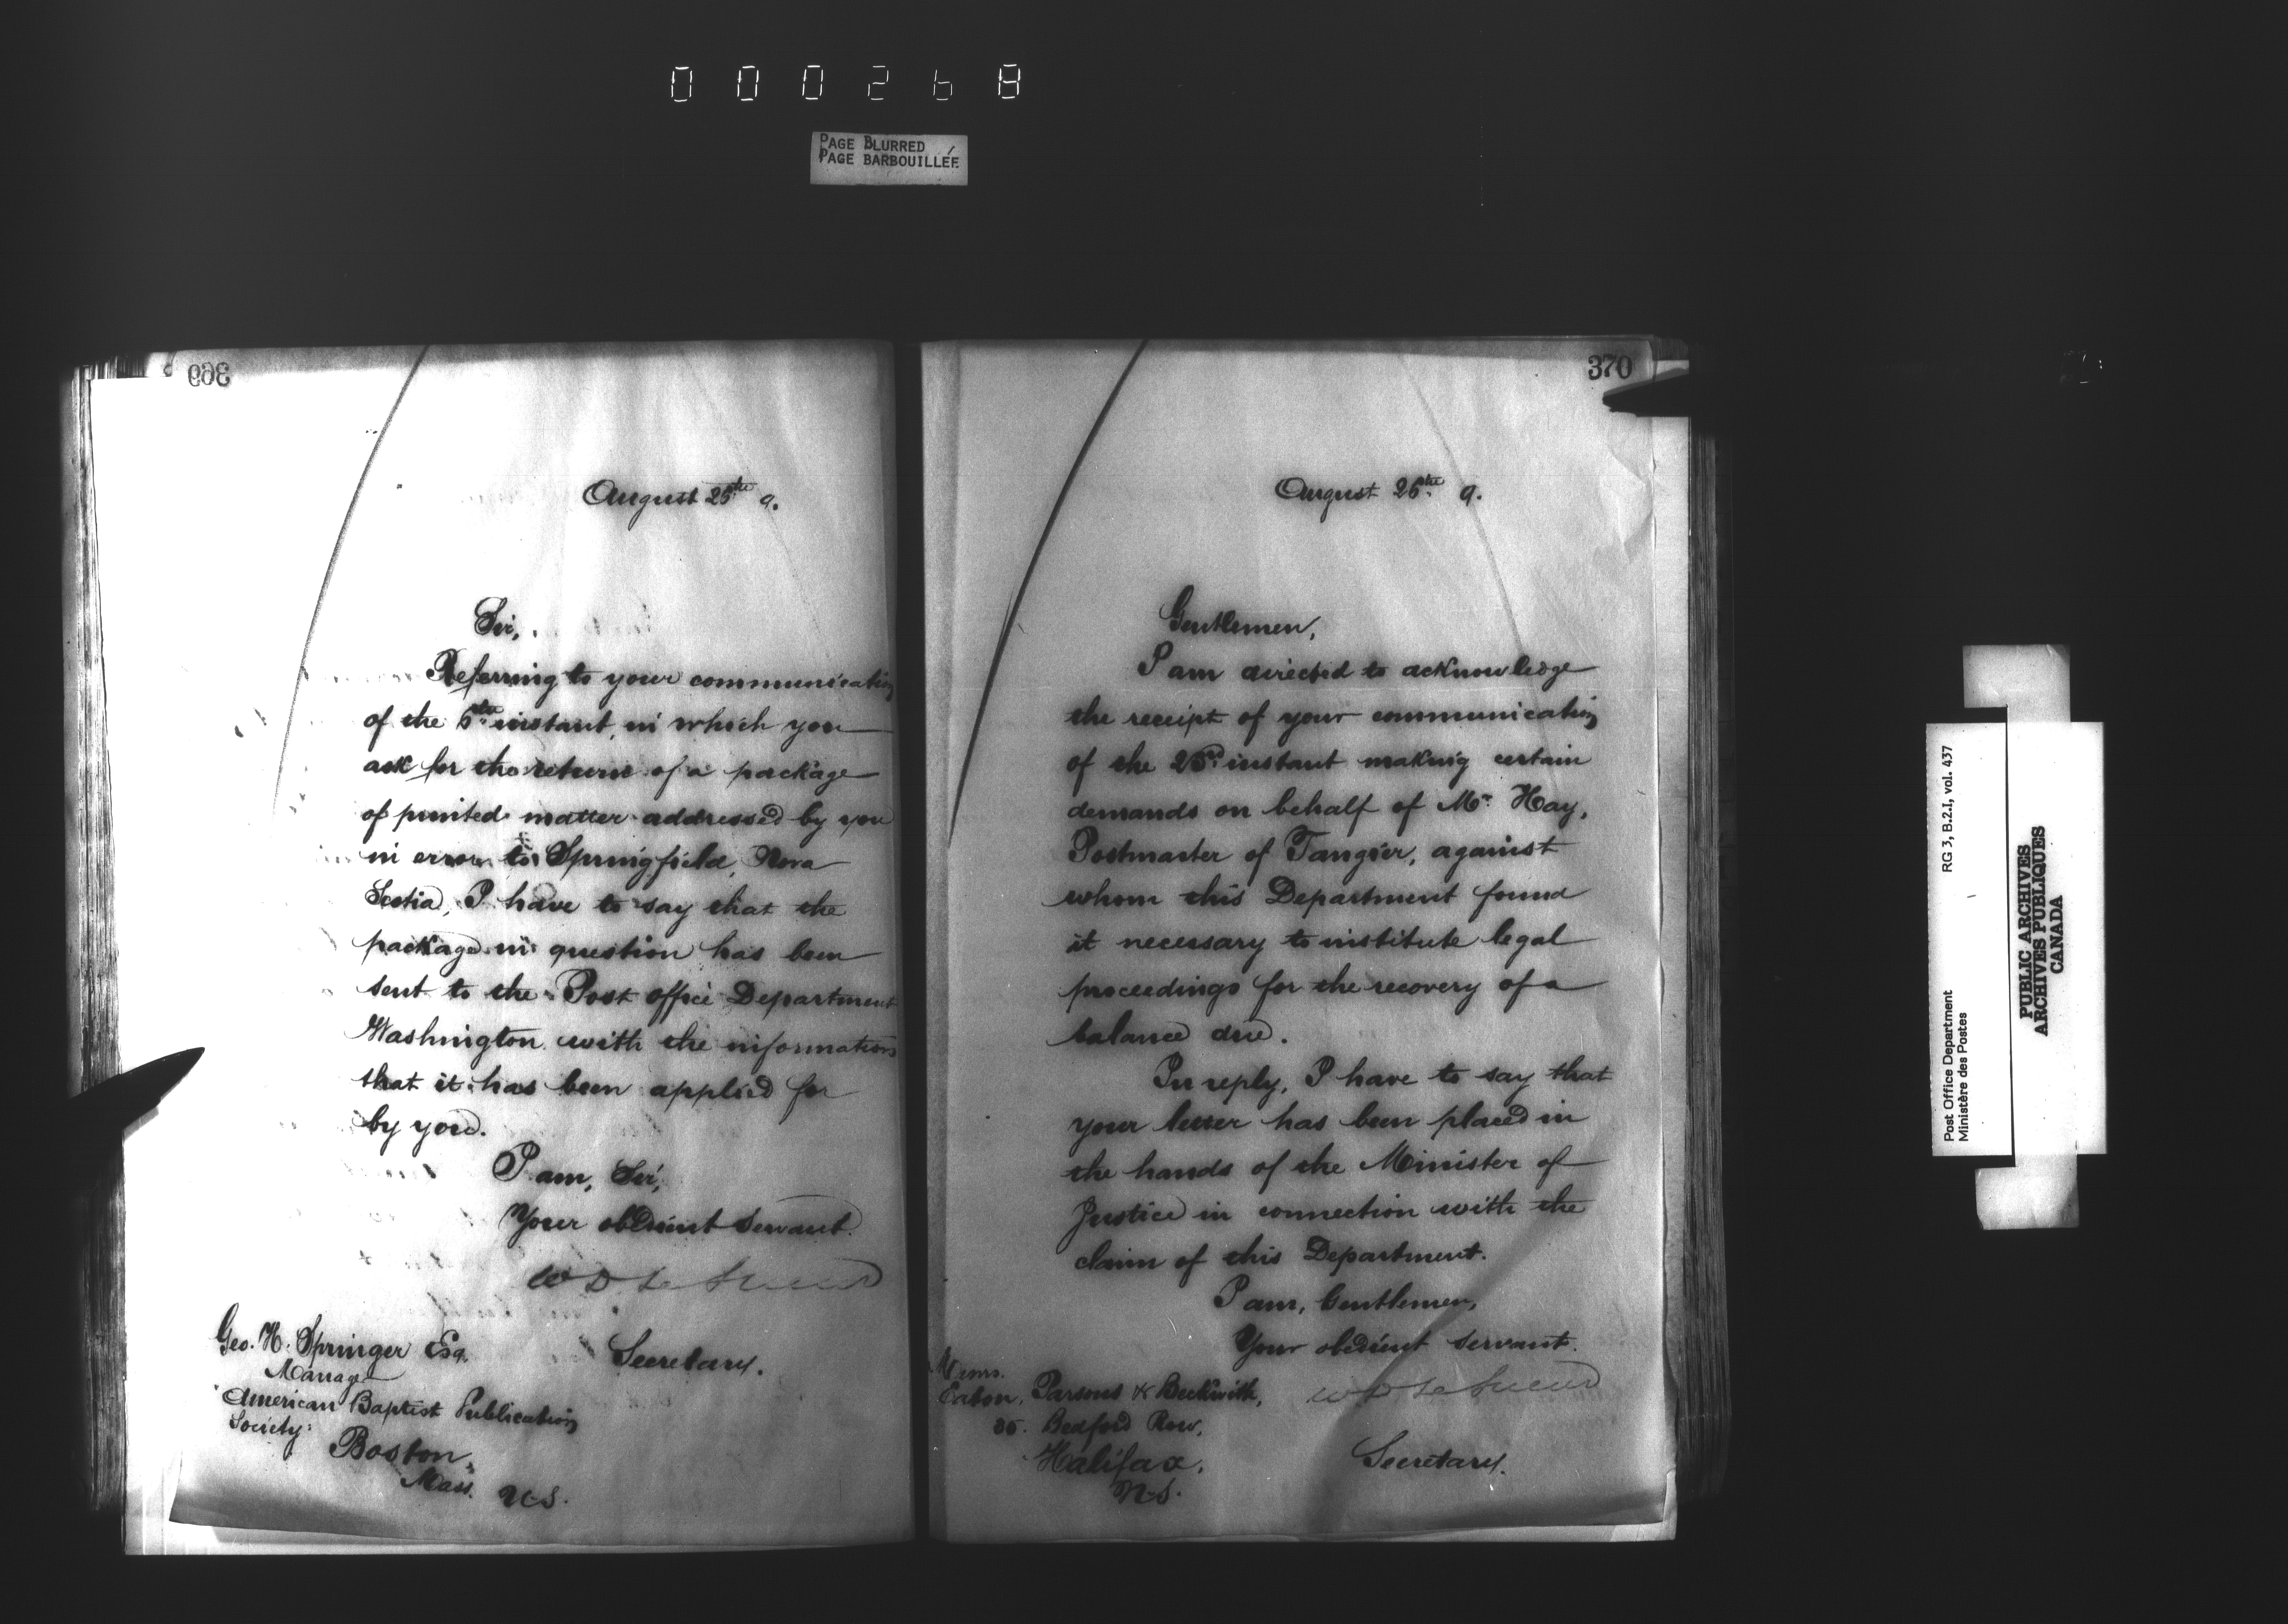 000268
PAGE BLURRED
PAGE BARBOUILLÉE
369
August 25th 9.
Sir,
Referring to your communication
of the 6th instant, in which you
ask for the return of a package
of printed matter addressed by you
in error to Springfield, Nova
Scotia, I have to say that the
package in question has been
sent to the Post office Department
Washington with the information
that it has been applied for
by you.
I am, Sir,
Your obedient servant.
W D Le Sueur
Secretary.
Geo. H. Springer Esq.
Manager
American Baptist Publication
Society
Boston,
Mass. U.S.
370
August 26th 9.
Gentlemen,
I am directed to acknowledge
the receipt of your communication
of the instant making certain
demands on behalf of Mr. Hay,
Postmaster of Tangier, against
whom this Department found
it necessary to institute legal
proceedings for the recovery of a
balance due.
In reply, I have to say that
your letter has been placed in
the hands of the Minister of
Justice in connection with the
claim of this Department.
I am, Gentlemen,
Your obedient servant.
W D Le Sueur
Secretary.
Messrs.
Eaton, Parsons & Beckwith,
Bedford Row,
Halifax,
N.S.
Post Office Department
Ministère des Postes
RG 3, B.2.I, vol. 437
PUBLIC ARCHIVES
ARCHIVES PUBLIQUES
CANADA